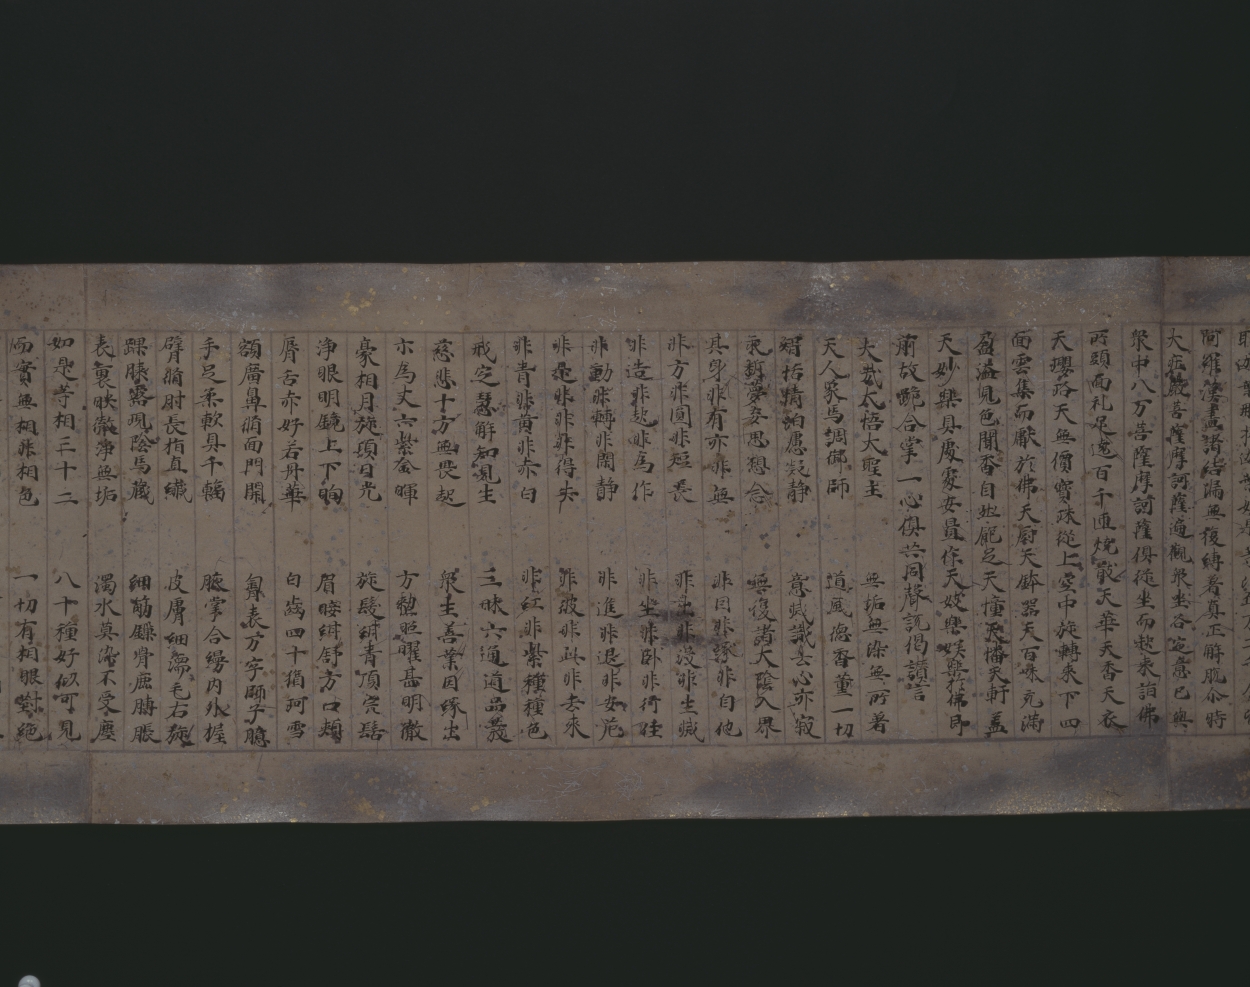 阿羅漢盡諸結漏無復縛著真正解脫尒時
大莊嚴菩薩摩訶薩遍觀眾坐各定意已與
眾中八万菩薩摩訶薩俱從坐而起來詣佛
所頭面礼足遶百千匝燒散天華天香天衣
天瓔珞天無價寶珠從上空中旋轉來下四
面雲集而獻於佛天廚天鉢器天百味充滿
盈溢見色聞香自然飽足天幢天幡天軒盖
天妙樂具處處安置作天妓樂娛樂於佛即
前胡跪合掌一心俱共同聲說偈讚言
大哉大悟大聖主 無垢無染無所著
天人象馬調御師 道風德香薰一切
智恬情泊慮凝靜 意滅識亡心亦寂
永斷夢妄思想念 無復諸大陰入界
其身非有亦非無 非因非緣非自他
非方非圓非短長 非出非沒非生滅
非造非起非為作 非坐非臥非行住
非動非轉非閑靜 非進非退非安危
非是非非非得失 非彼非此非去來
非青非黃非赤白 非紅非紫種種色
戒定慧解知見生 三昧六通道品發
慈悲十方無畏起 眾生善業因緣出
示為丈六紫金暉 方整照曜甚明徹
豪相月旋項日光 旋髮紺青頂肉髻
淨眼明鏡上下眴 眉睫紺舒方口頰
脣舌赤好若丹華 白齒四十猶珂雪
額廣鼻脩面門開 胸表万字師子臆
手足柔軟具千輻 腋掌合縵內外握
臂脩肘長指直纖 皮膚細濡毛右旋
踝膝露現陰馬藏 細筋鏁骨鹿膊脹
表裏映徹淨無垢 濁水莫染不受塵
如是等相三十二 八十種好似可見
而實無相非相色 一切有相眼對絕